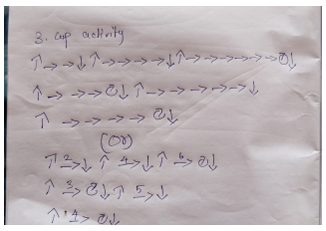 3. cup activity
↑→→↓↑→→→→↓↑→→→→→→↻↓
↑→→→↻↓↑→→→→→↓
↑→→→→↻↓
(Or)
↑2→↓↑4→↓↑6→↻↓
↑3→↻↓↑5→↓
↑4→↻↓